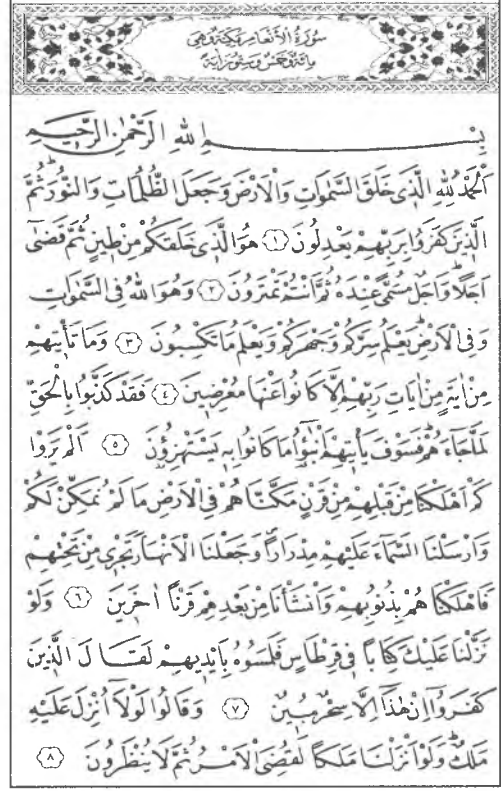 سُورَةُ الْأَنْعَامِ مَكِّيَّةٌ وَهِيَ
مِائَةٌ وَخَمْسٌ وَسِتُّونَ آيَةً
بِسْمِ اللّٰهِ الرَّحْمٰنِ الرَّحِيمِ
اَلْحَمْدُ لِلّٰهِ الَّذِي خَلَقَ السَّمٰوَاتِ وَالْاَرْضَ وَجَعَلَ الظُّلُمَاتِ وَالنُّورَ ثُمَّ
الَّذِينَ كَفَرُوا بِرَبِّهِمْ يَعْدِلُونَ ﴿١﴾ هُوَ الَّذِي خَلَقَكُمْ مِنْ طِينٍ ثُمَّ قَضٰٓى
اَجَلًا وَاَجَلٌ مُسَمًّى عِنْدَهُ ثُمَّ اَنْتُمْ تَمْتَرُونَ ﴿٢﴾ وَهُوَ اللّٰهُ فِي السَّمٰوَاتِ
وَفِي الْاَرْضِ يَعْلَمُ سِرَّكُمْ وَجَهْرَكُمْ وَيَعْلَمُ مَا تَكْسِبُونَ ﴿٣﴾ وَمَا تَأْتِيهِمْ
مِنْ اٰيَةٍ مِنْ اٰيَاتِ رَبِّهِمْ اِلَّا كَانُوا عَنْهَا مُعْرِضِينَ ﴿٤﴾ فَقَدْ كَذَّبُوا بِالْحَقِّ
لَمَّا جَٓاءَهُمْ فَسَوْفَ يَأْتِيهِمْ اَنْبٰٓؤُ۬ا مَا كَانُوا بِهِ يَسْتَهْزِؤُ۫نَ ﴿٥﴾ اَلَمْ يَرَوْا
كَمْ اَهْلَكْنَا مِنْ قَبْلِهِمْ مِنْ قَرْنٍ مَكَّنَّاهُمْ فِي الْاَرْضِ مَا لَمْ نُمَكِّنْ لَكُمْ
وَاَرْسَلْنَا السَّمَٓاءَ عَلَيْهِمْ مِدْرَارًا وَجَعَلْنَا الْاَنْهَارَ تَجْرِي مِنْ تَحْتِهِمْ
فَاَهْلَكْنَاهُمْ بِذُنُوبِهِمْ وَاَنْشَأْنَا مِنْ بَعْدِهِمْ قَرْنًا اٰخَرِينَ ﴿٦﴾ وَلَوْ
نَزَّلْنَا عَلَيْكَ كِتَابًا فِي قِرْطَاسٍ فَلَمَسُوهُ بِاَيْدِيهِمْ لَقَالَ الَّذِينَ
كَفَرُٓوا اِنْ هٰذَٓا اِلَّا سِحْرٌ مُبِينٌ ﴿٧﴾ وَقَالُوا لَوْلَٓا اُنْزِلَ عَلَيْهِ
مَلَكٌ وَلَوْ اَنْزَلْنَا مَلَكًا لَقُضِيَ الْاَمْرُ ثُمَّ لَا يُنْظَرُونَ ﴿٨﴾